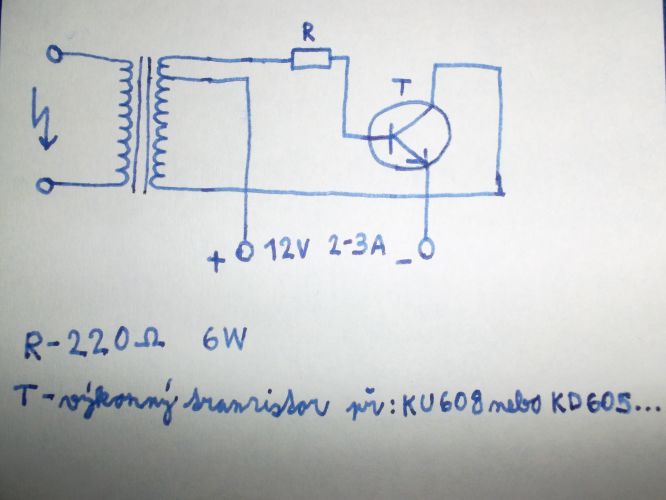 R
T
+ 12V 2-3A -
R-220Ω 6W
T-výkonný tranzistor př: KU608 nebo KD605...